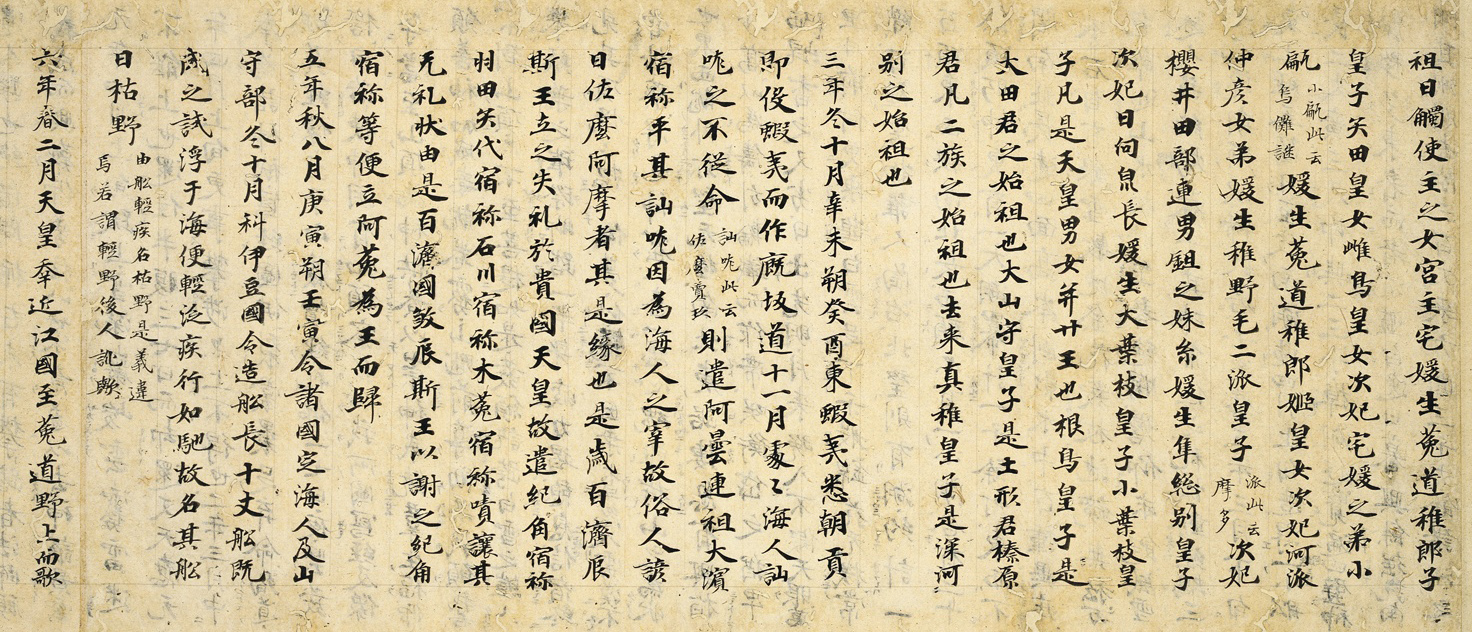 祖日觸使主之女宮主宅媛生菟道稚郎子
皇子矢田皇女雌鳥皇女次妃宅媛之弟小
甂小甂此云烏儺謎媛生菟道稚郎姫皇女次妃河派
仲彦女弟媛生稚野毛二派皇子派此云摩多次妃
櫻井田部連男鉏之妹糸媛生隼総別皇子
次妃日向泉長媛生大葉枝皇子小葉枝皇
子凡是天皇男女并廿王也根鳥皇子是
大田君之始祖也大山守皇子是土形君榛原
君凡二族之始祖也去来真稚皇子是深河
別之始祖也
三年冬十月辛未朔癸酉東蝦夷悉朝貢
即役蝦夷而作厩坂道十一月處〻海人訕
哤之不從命訕哤此云佐麼賣玖則遣阿曇連祖大濱
宿祢平其訕哤因為海人之宰故俗人諺
曰佐麼阿摩者其是緣也是歲百濟辰
斯王立之失礼於貴國天皇故遣紀角宿祢
羽田矢代宿祢石川宿祢木菟宿祢嘖讓其
无礼狀由是百濟國敦辰斯王以謝之紀角
宿祢等便立阿菟為王而歸
五年秋八月庚寅朔壬寅令諸國定海人及山
守部冬十月科伊豆國令造舩長十丈舩既
成之試浮于海便輕泛疾行如馳故名其舩
曰枯野由舩輕疾名枯野是義違焉若謂輕野後人訛歟
六年春二月天皇幸近江國至菟道野上而歌